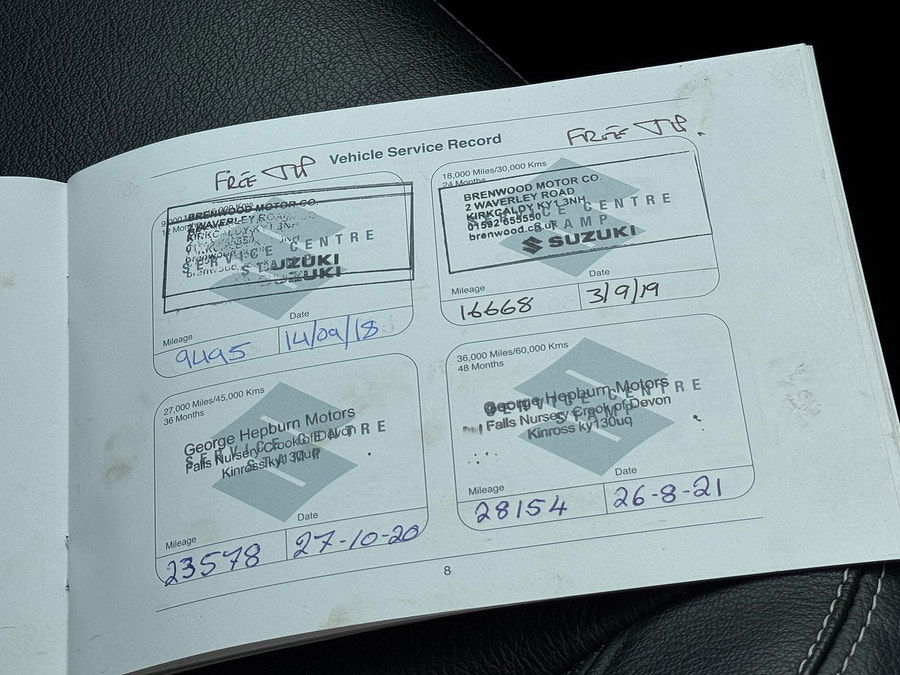 Vehicle Service Record
FREE
FREE
BRENWOOD MOTOR CO.
2 WAVERLEY ROAD
KIRKCALDY KY1 3NH
SERVICE CENTRE
SUZUKI
Mileage
Date
9495
14/09/18
18,000 Miles/30,000 Kms
24 Months
BRENWOOD MOTOR CO.
2 WAVERLEY ROAD
KIRKCALDY KY1 3NH
01592 655550
brenwood.co.uk
SERVICE CENTRE
STAMP
SUZUKI
Mileage
Date
16668
3/9/19
27,000 Miles/45,000 Kms
36 Months
George Hepburn Motors
Falls Nursery Crook of Devon
Kinross ky130uq
SERVICE CENTRE
STAMP
Mileage
Date
23578
27-10-20
36,000 Miles/60,000 Kms
48 Months
George Hepburn Motors
Falls Nursery Crook of Devon
Kinross ky130uq
SERVICE CENTRE
STAMP
Mileage
Date
28154
26-8-21
8